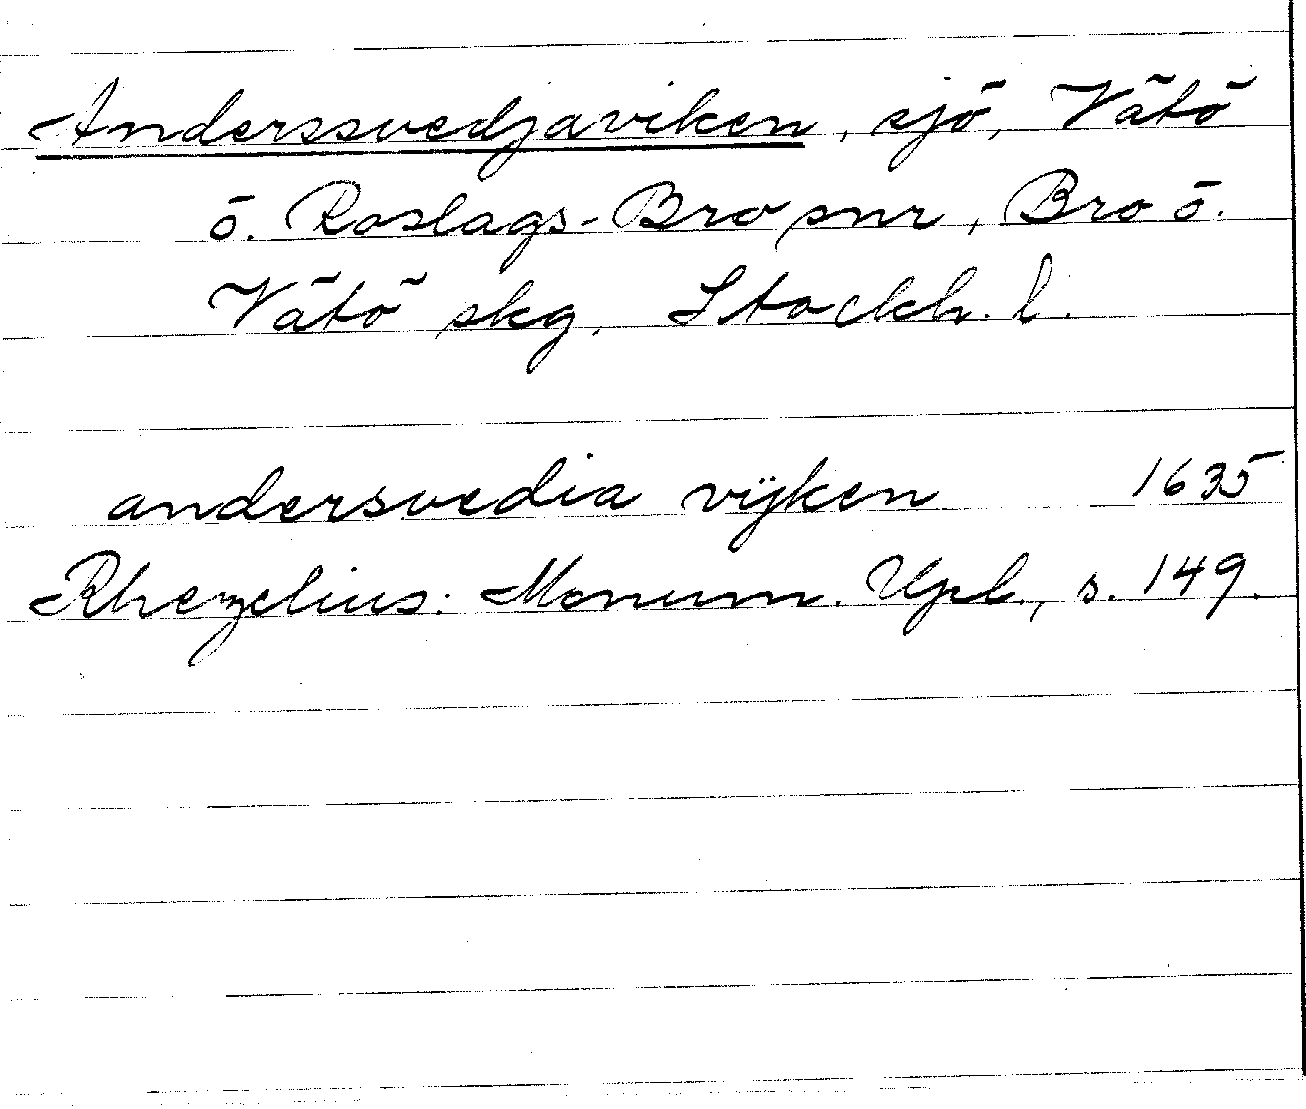 Anderssvedjaviken, sjö, Vätö
ö. Roslags-Bro snr, Bro ö.
Vätö skg, Stockh. l.
andersvedia vijken 1635
Rhezelius: Monum. Upl., s. 149.